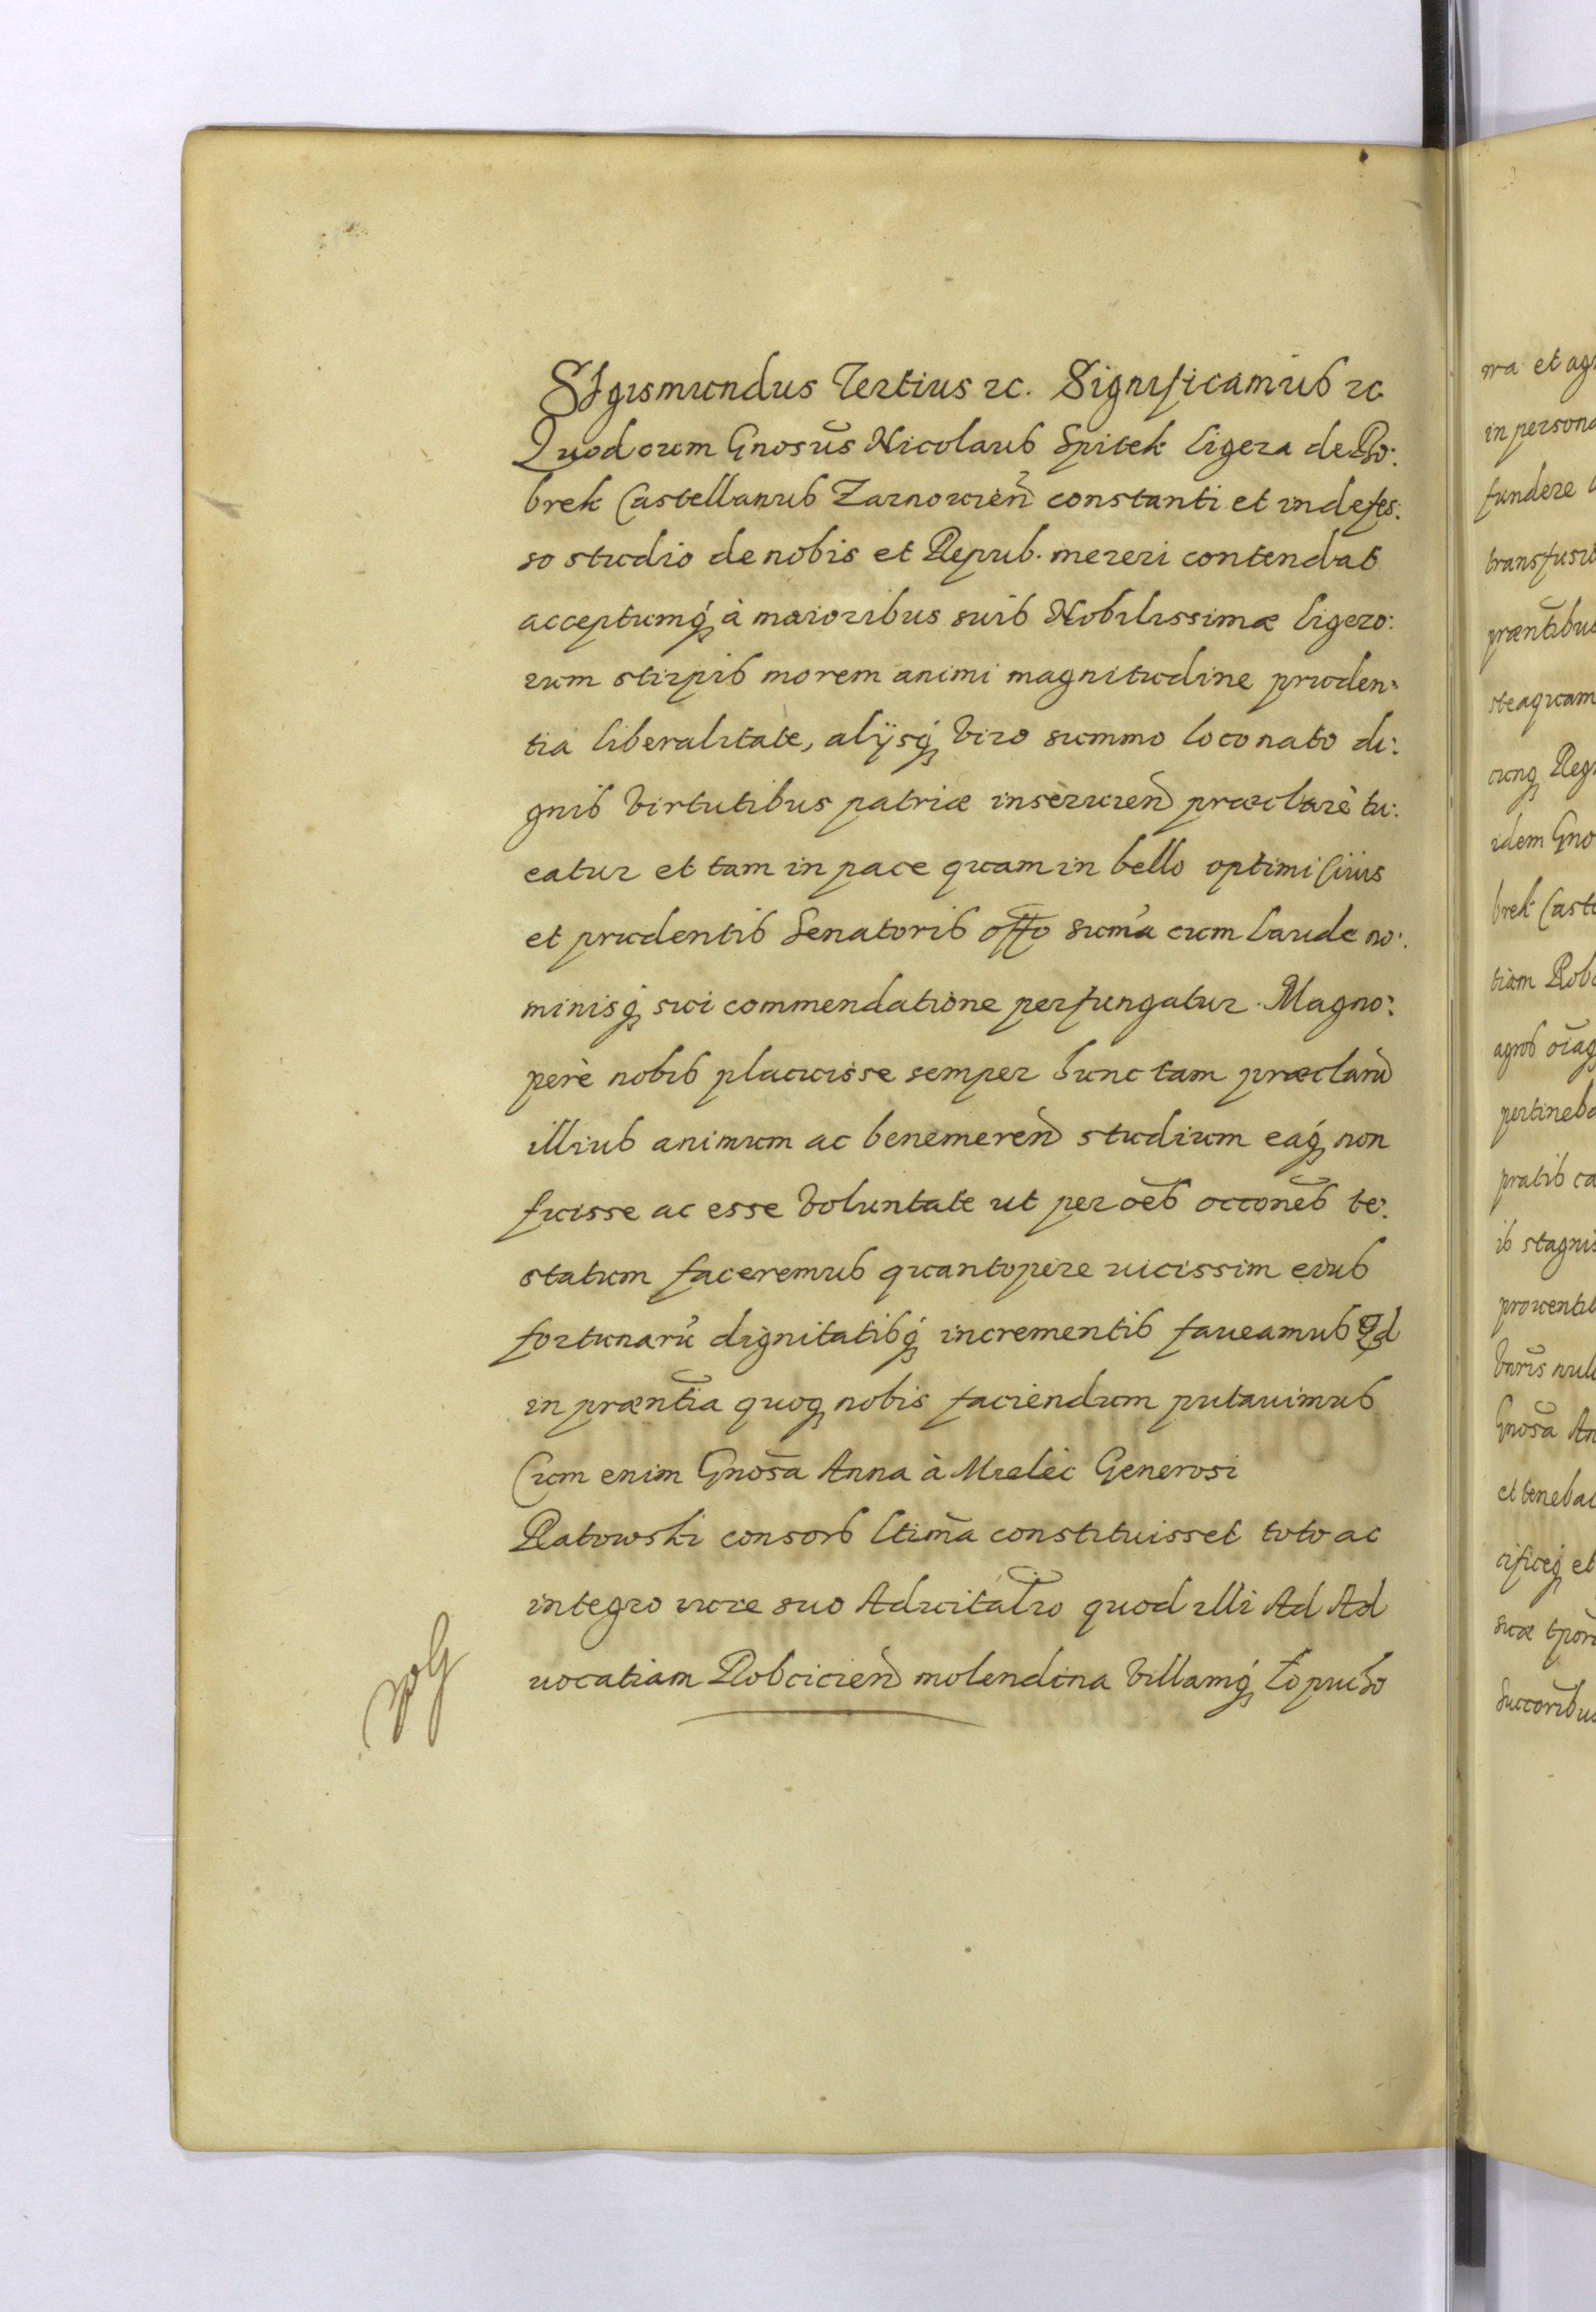 SIgismundus Tertius etc. Significamus etc
Quod cum Gnosus Nicolaus Spitek Ligeza de Bo:
brek Castellanus Zarnouien constanti et indefes:
so studio de nobis et Repub. mereri contendat
acceptumq à maioribus suis Nobilissimæ Ligezo:
rum stirpis morem animi magnitudine pruden:
tia liberalitate, alijsq viro summo loco nato di:
gnis virtutibus patriæ inseruien præclarè tu:
eatur et tam in pace quam in bello optimi Ciuis
et prudentis Senatoris offo suma cum laude no:
minisq sui commendatione perfungatur. Magno:
perè nobis placuisse semper hunc tam præclarū
illius animum ac benemeren studium eaq non
fuisse ac esse voluntate ut per oes occones te:
statum faceremus quantopere uicissim eius
fortunarū dignitatisq incrementis faueamus Qd
in præntia quoq nobis faciendum putauimus
Cum enim Gnosa Anna à Mielec Generosi
Ratowski consors ltima constituisset toto ac
integro iure suo Aduitalio quod illi Ad Ad
uocatiam Robcicien molendina villamq Łopucho
ma et ag
in persona
fundere
transfusio
præntibus
steaquam
cunq Reg
idem Gno
brek Cast
tiam Rob
agros oiaq
pertineba
pratis ca
is stagnis
prouentib
Gnosa An
et tenebat
cificeq et
suæ tpor
Succoribus